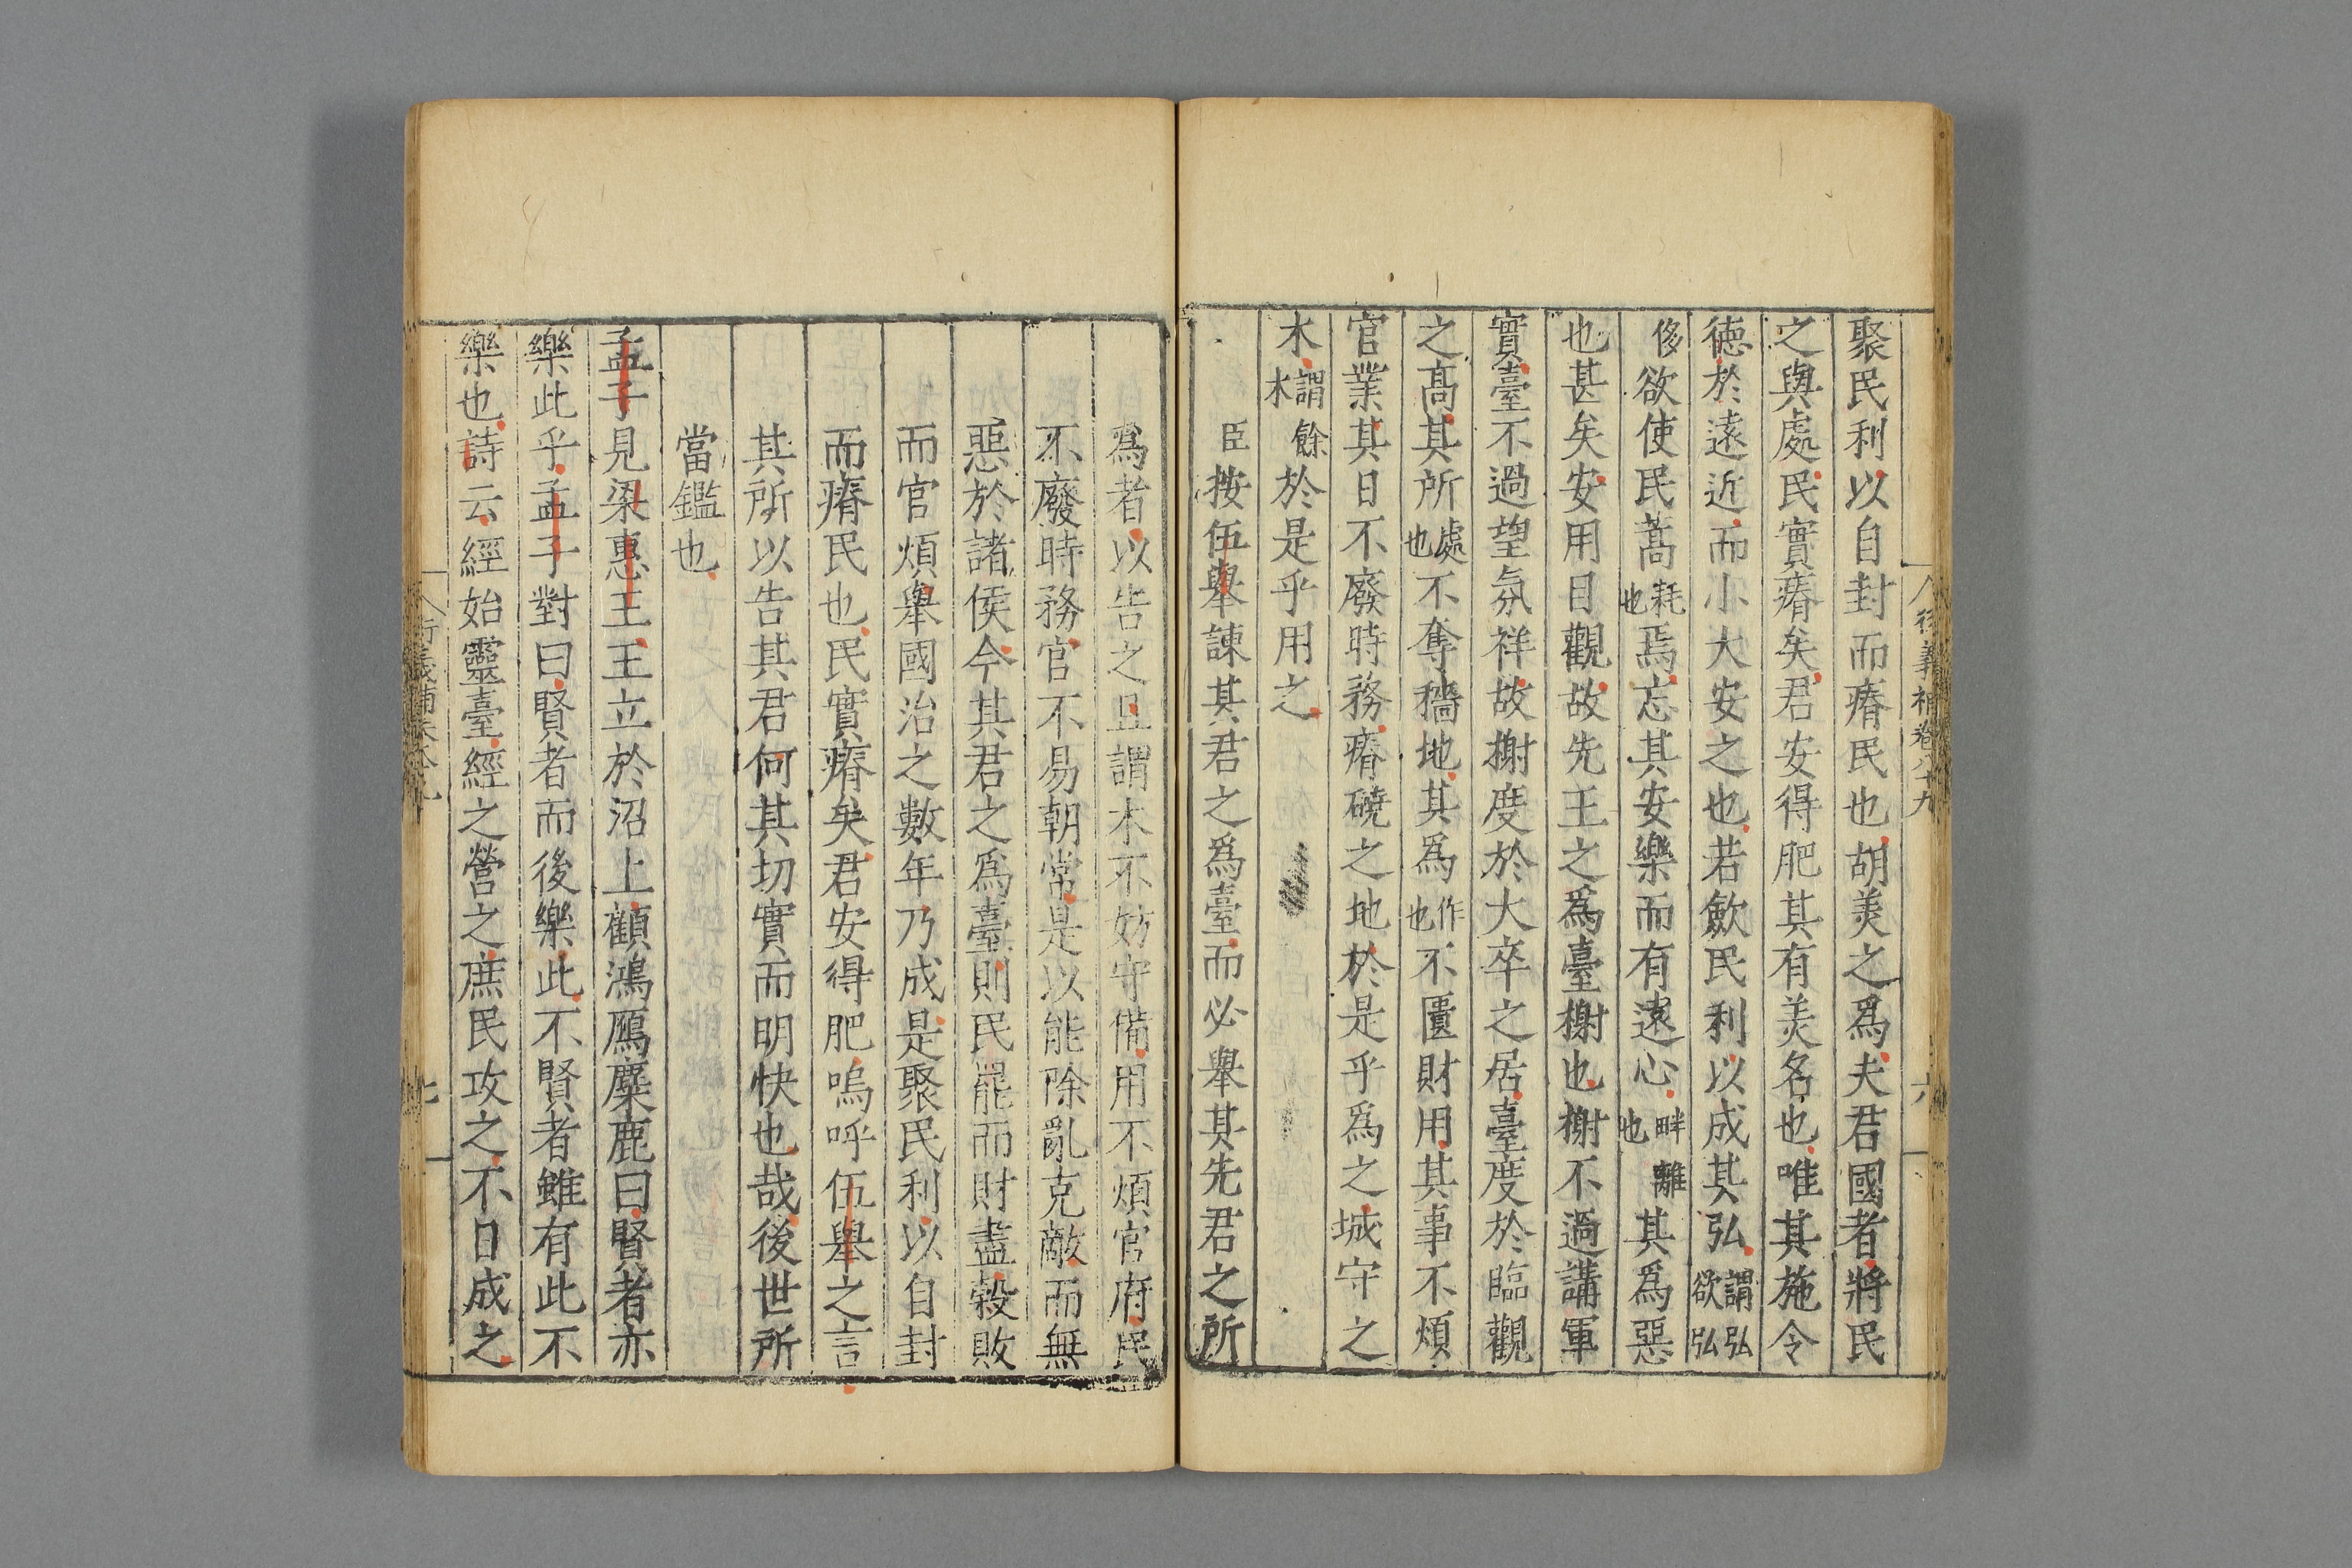 聚民利以自封而瘠民也胡美之爲夫君國者將民
之與處民實瘠矣君安得肥其有美名也唯其施令
德於遠近而小大安之也若歛民利以成其弘謂弘欲弘
侈欲使民蒿耗也焉忘其安樂而有遠心畔也離其爲惡
也甚矣安用目觀故先王之爲臺榭也榭不過講軍
實臺不過望氛祥故榭度於大卒之居臺度於臨觀
之高其所處也不奪穡地其爲作也不匱財用其事不煩
官業其日不廢時務瘠磽之地於是乎爲之城守之
木謂餘木於是乎用之
臣按伍舉諫其君之爲臺而必舉其先君之所
衍義補卷八十九
六
爲者以告之且謂木不妨守備用不煩官府民
不廢時務官不易朝常是以能除亂克敵而無
惡於諸侯今其君之爲臺則民罷而財盡穀敗
而官煩舉國治之數年乃成是聚民利以自封
而瘠民也民實瘠矣君安得肥嗚呼伍舉之言
其所以告其君何其切實而明快也哉後世所
當鑑也
孟子見梁惠王王立於沼上顧鴻鴈麋鹿曰賢者亦
樂此乎孟子對曰賢者而後樂此不賢者雖有此不
樂也詩云經始靈臺經之營之庶民攻之不日成之
七